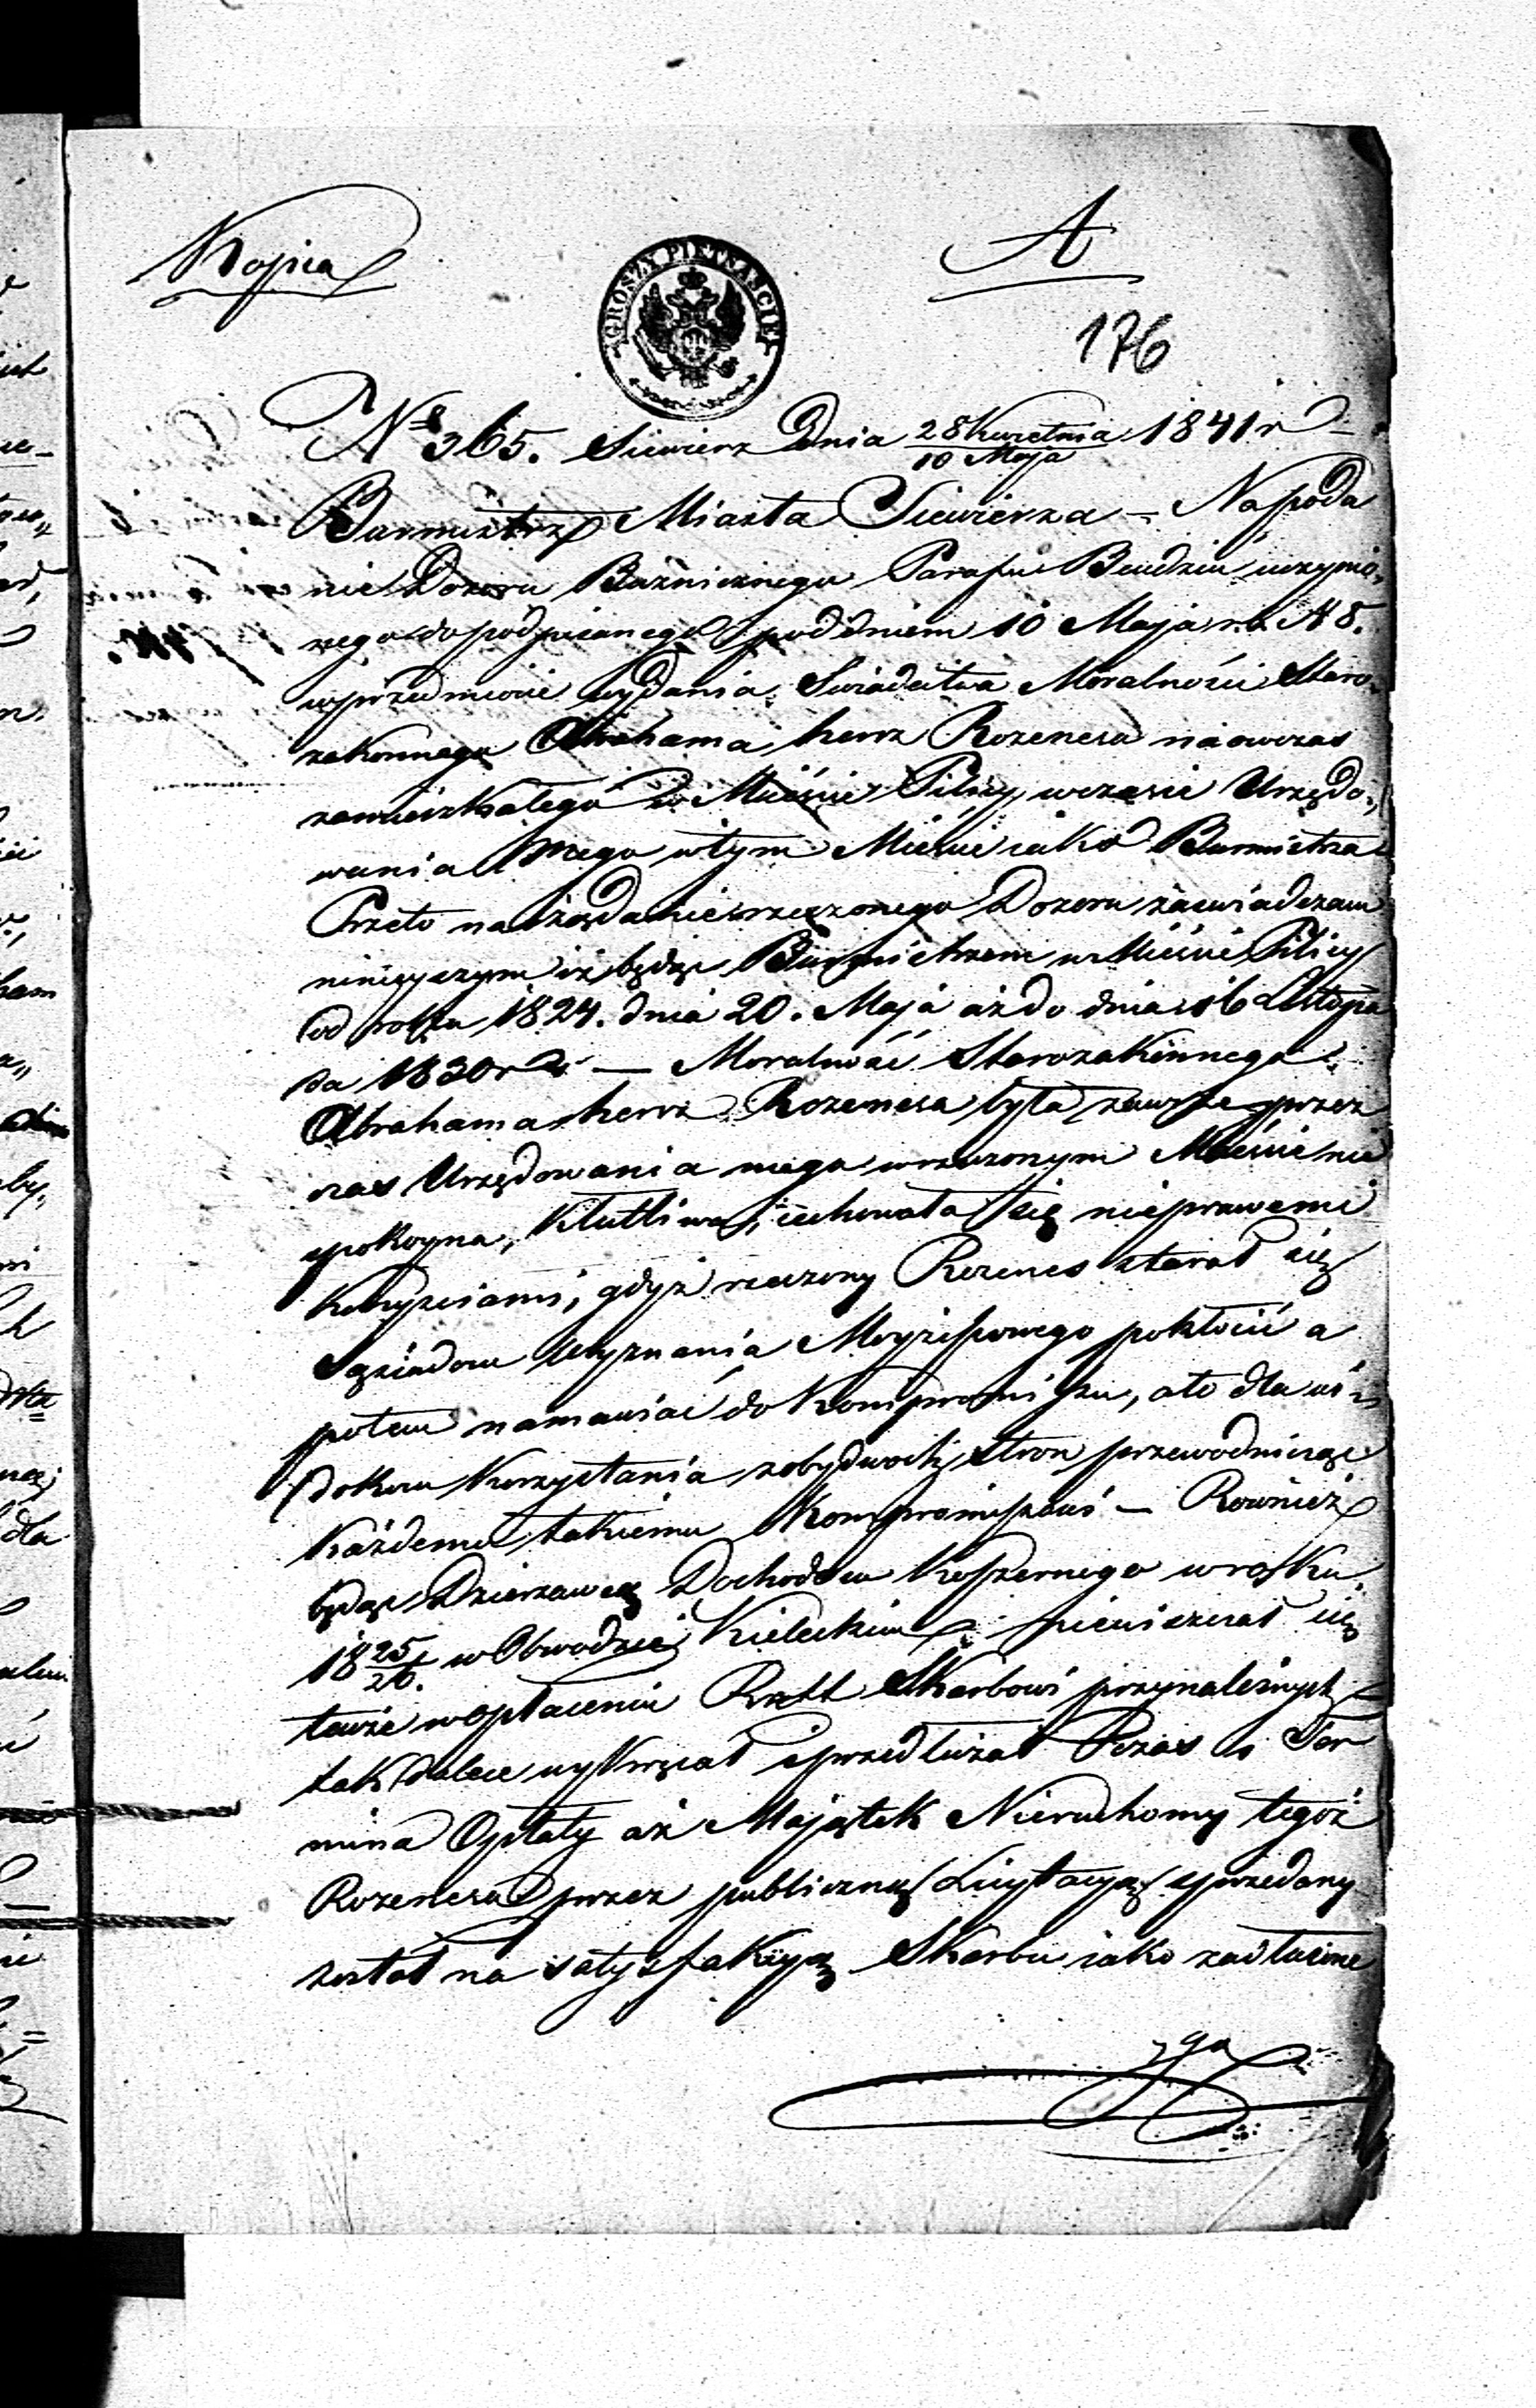 Kopia
A
GROSZY PIETNAŚCIE
176
N° 365. Siewierz Dnia 28 Kwietnia / 10 Maja 1841 r
Burmistrz Miasta Siewierza – Na poda
nie Dozoru Bużnicznego Parafii Bendzin uczynio„
nego do podpisanego pod dniem 10 Maja rb N 8.
w przedmiocie wydania Swiadectwa Moralności Staro„
zakonnego Abrahama hersz Rozenesa naowczas
zamieszkałego w Mieście Pilicy wczasie Urzędo„
wania mego wtym Mieście iako Burmistrza
Przeto na żądanie rzeczonego Dozoru zaswiadczam
ninieyszym iż będąc Burmistrzem w Mieście Pilicy
od roku 1824. dnia 20. Maja aż do dnia 16 Listopa
da 1830 r — Moralność Starozakonnego
Abrahama hersz Rozenesa była zawsze przez
czas Urzędowania mego wrzeczonym Mieście nie
spokoyna, Kłutliwa, cechowała się nieprawemi
Korzysciami, gdyż rzeczony Rozenes starał się
Sąsiadow Wyznania Moyżeszowego pokłocić a
potem namawiać do Kompromissu, ato dla
Korzystania zobydwoch Stron przewodnicząc
Każdemu takiemu Kompromissowi — Rownież
będąc Dzierzawcą Dochodow Koszernego wroku
1825/26. w Obwodzie Kieleckim nieuiszczał się
także wopłaceniu Ratt Skarbowi przynależnych
tak dalece wykręcał i przedłużał Czas i Ter
mina Opłaty aż Majątek Nieruchomy tegoż
Rozenesa przez publiczną Licytacyą sprzedany
został na satysfakcyą Skarbu iako zadłużone
go